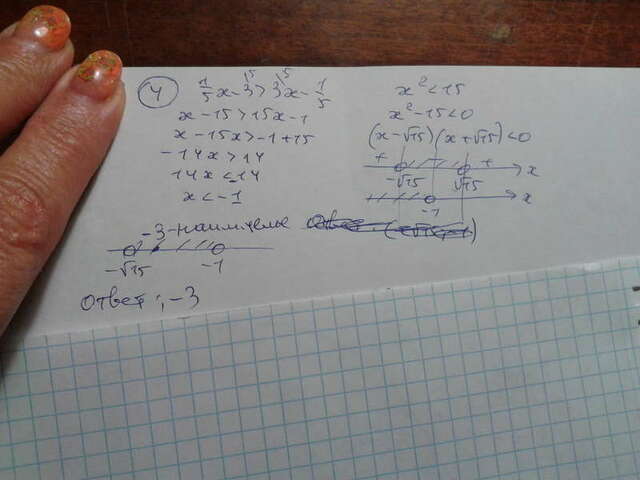 4
1/5 x - 3 > 3x - 1/5
5 5
x - 15 > 15x - 1
x - 15x > -1 + 15
-14x > 14
14x < -14
x < -1
x² < 15
x² - 15 < 0
(x - √15)(x + √15) < 0
+ - + x
-√15 √15
x
-1
-3 - наим. целое
-√15 -1
Ответ: -3